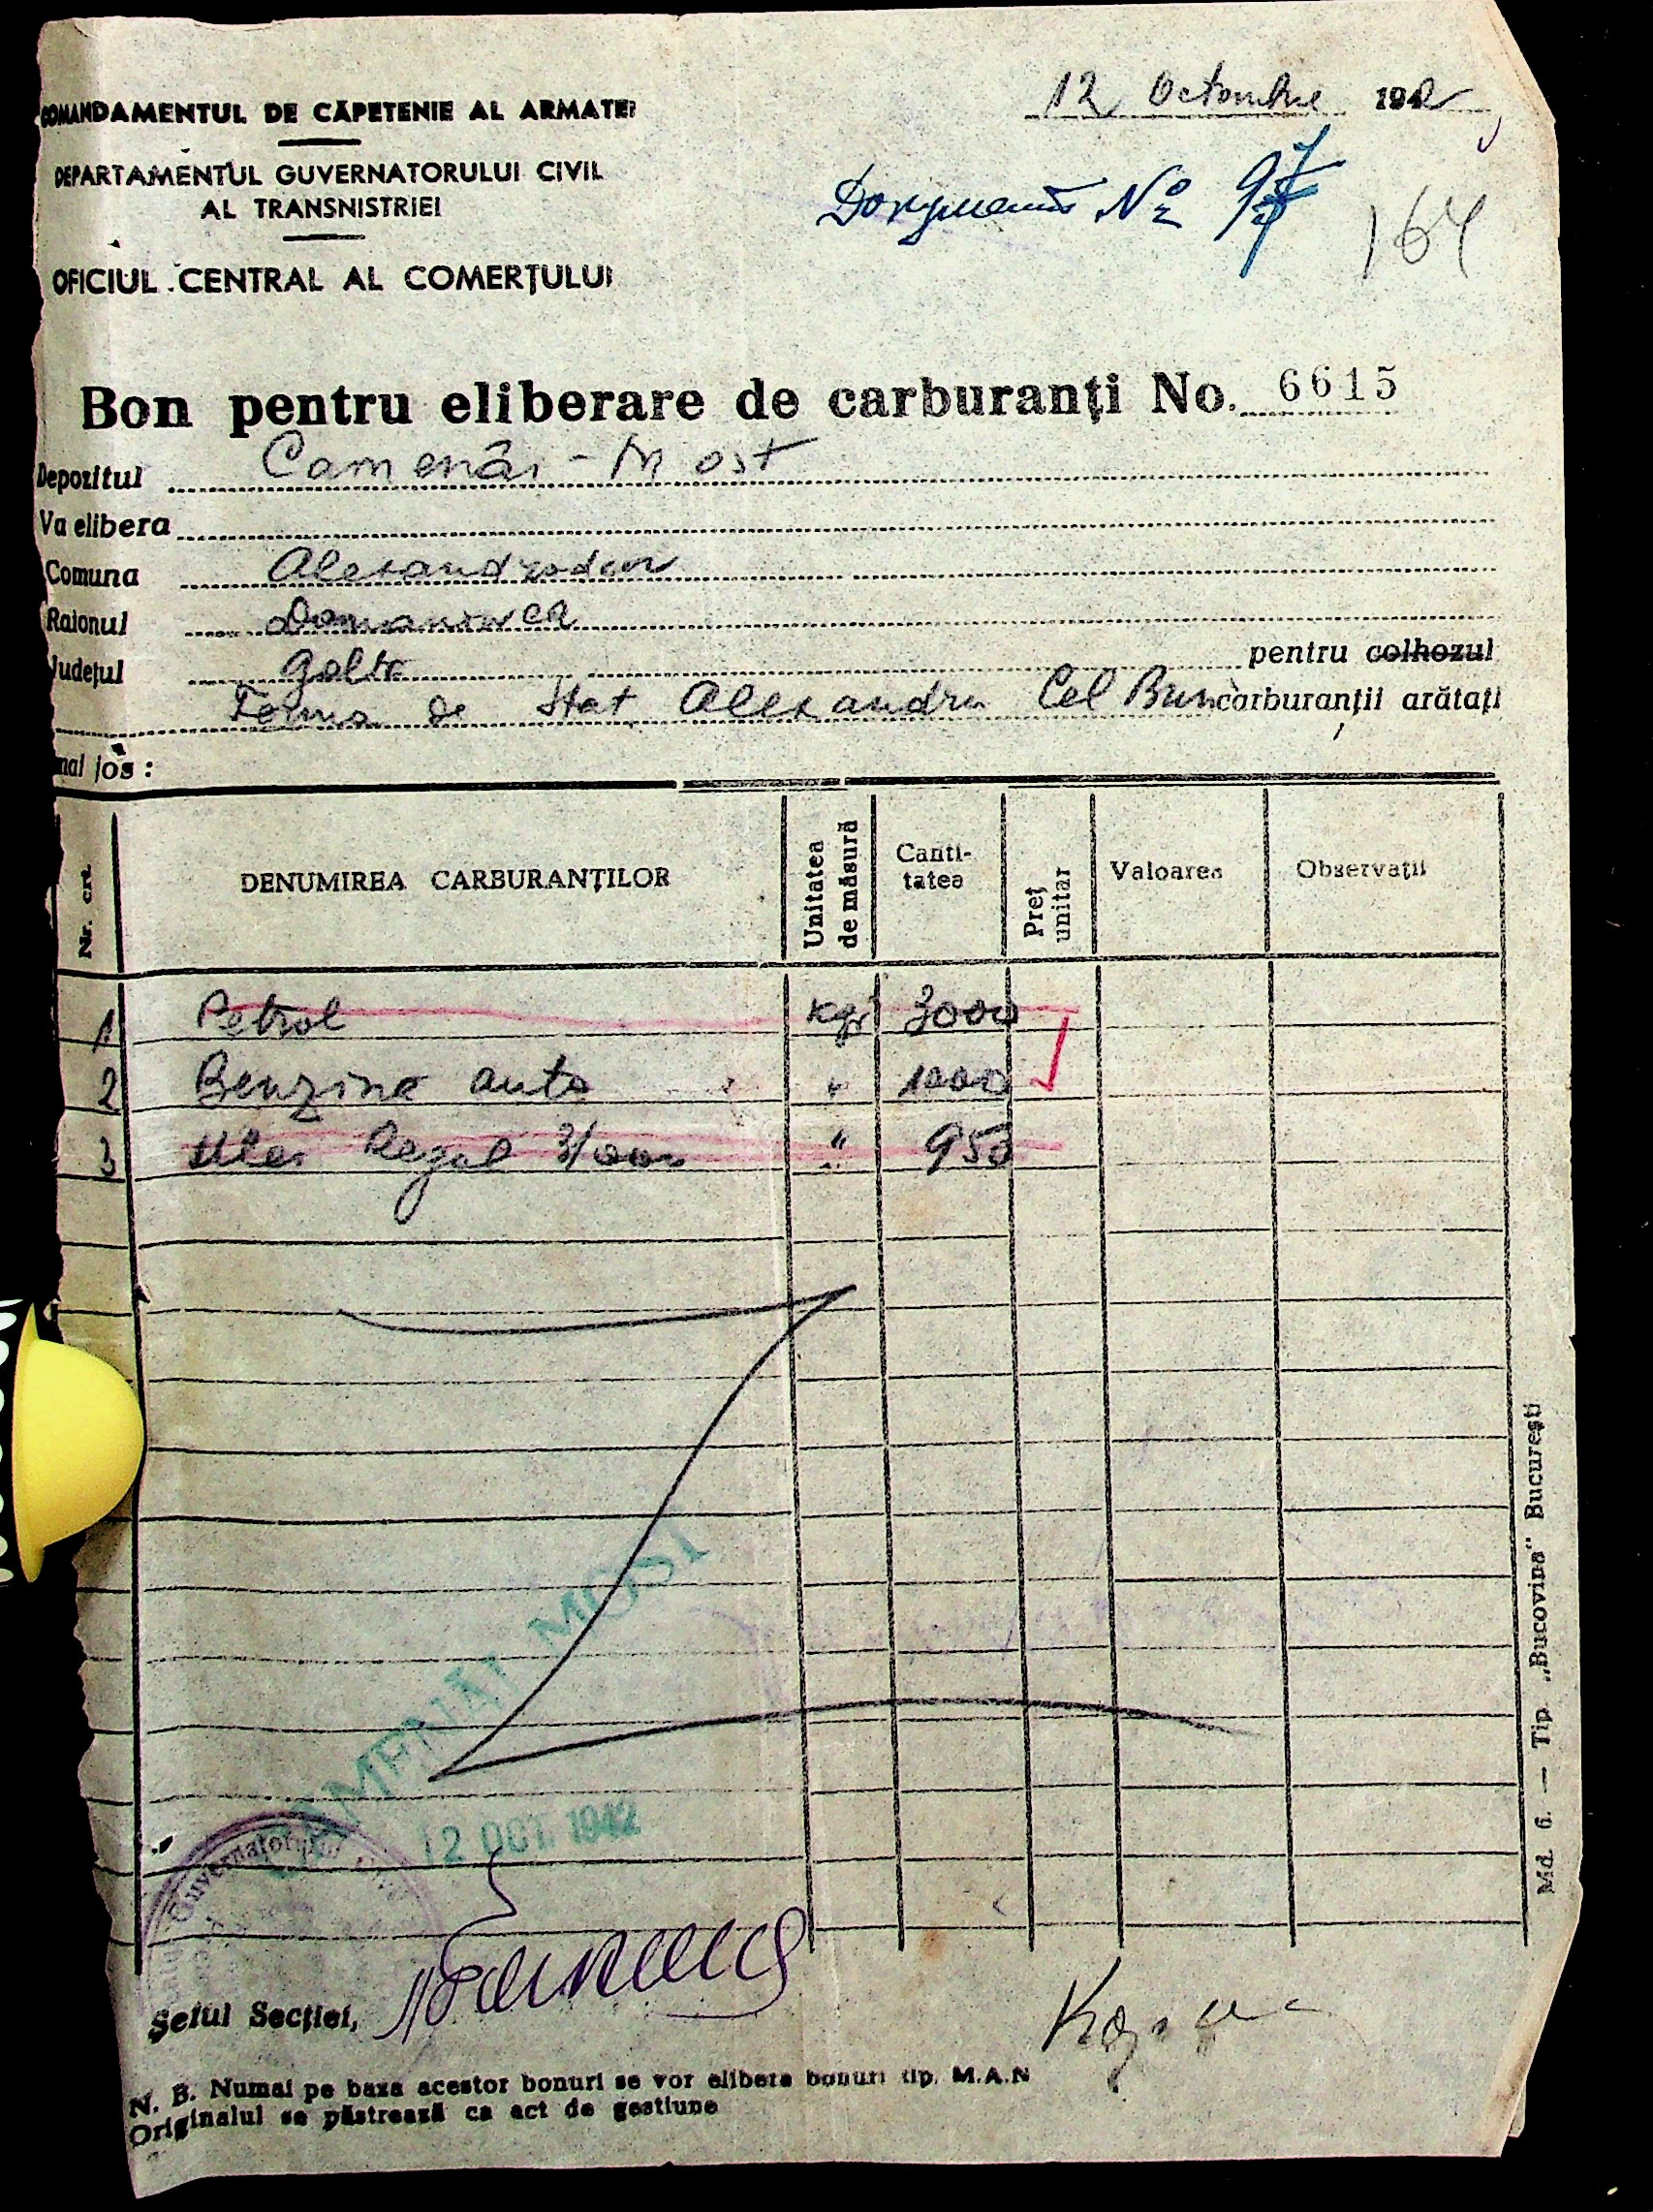 COMANDAMENTUL DE CĂPETENIE AL ARMATEI
12 Octombrie 1942
DEPARTAMENTUL GUVERNATORULUI CIVIL
AL TRANSNISTRIEI
Документ № 97
164
OFICIUL CENTRAL AL COMERȚULUI
Bon pentru eliberare de carburanți No. 6615
Depozitul Camenâi-Most
Va elibera
Comuna Alexandrodar
Raionul Domanovca
Județul Golta pentru colhozul
Ferma de Stat Alexandru Cel Bun carburanții arătați
mai jos :
Nr. crt. DENUMIREA CARBURANȚILOR Unitatea de măsură Canti-tatea Preț unitar Valoarea Observații
1 Petrol kgr 3000
2 Benzine auto " 1000
3 Ulei Regal " 953
CAMENÂI MOST
12 OCT. 1942
Guvernatorului Civil
Șeful Secției,
N. B. Numai pe baza acestor bonuri se vor elibera bonuri tip. M.A.N
Originalul se păstrează ca act de gestiune
Md. 6. — Tip. „Bucovina" București